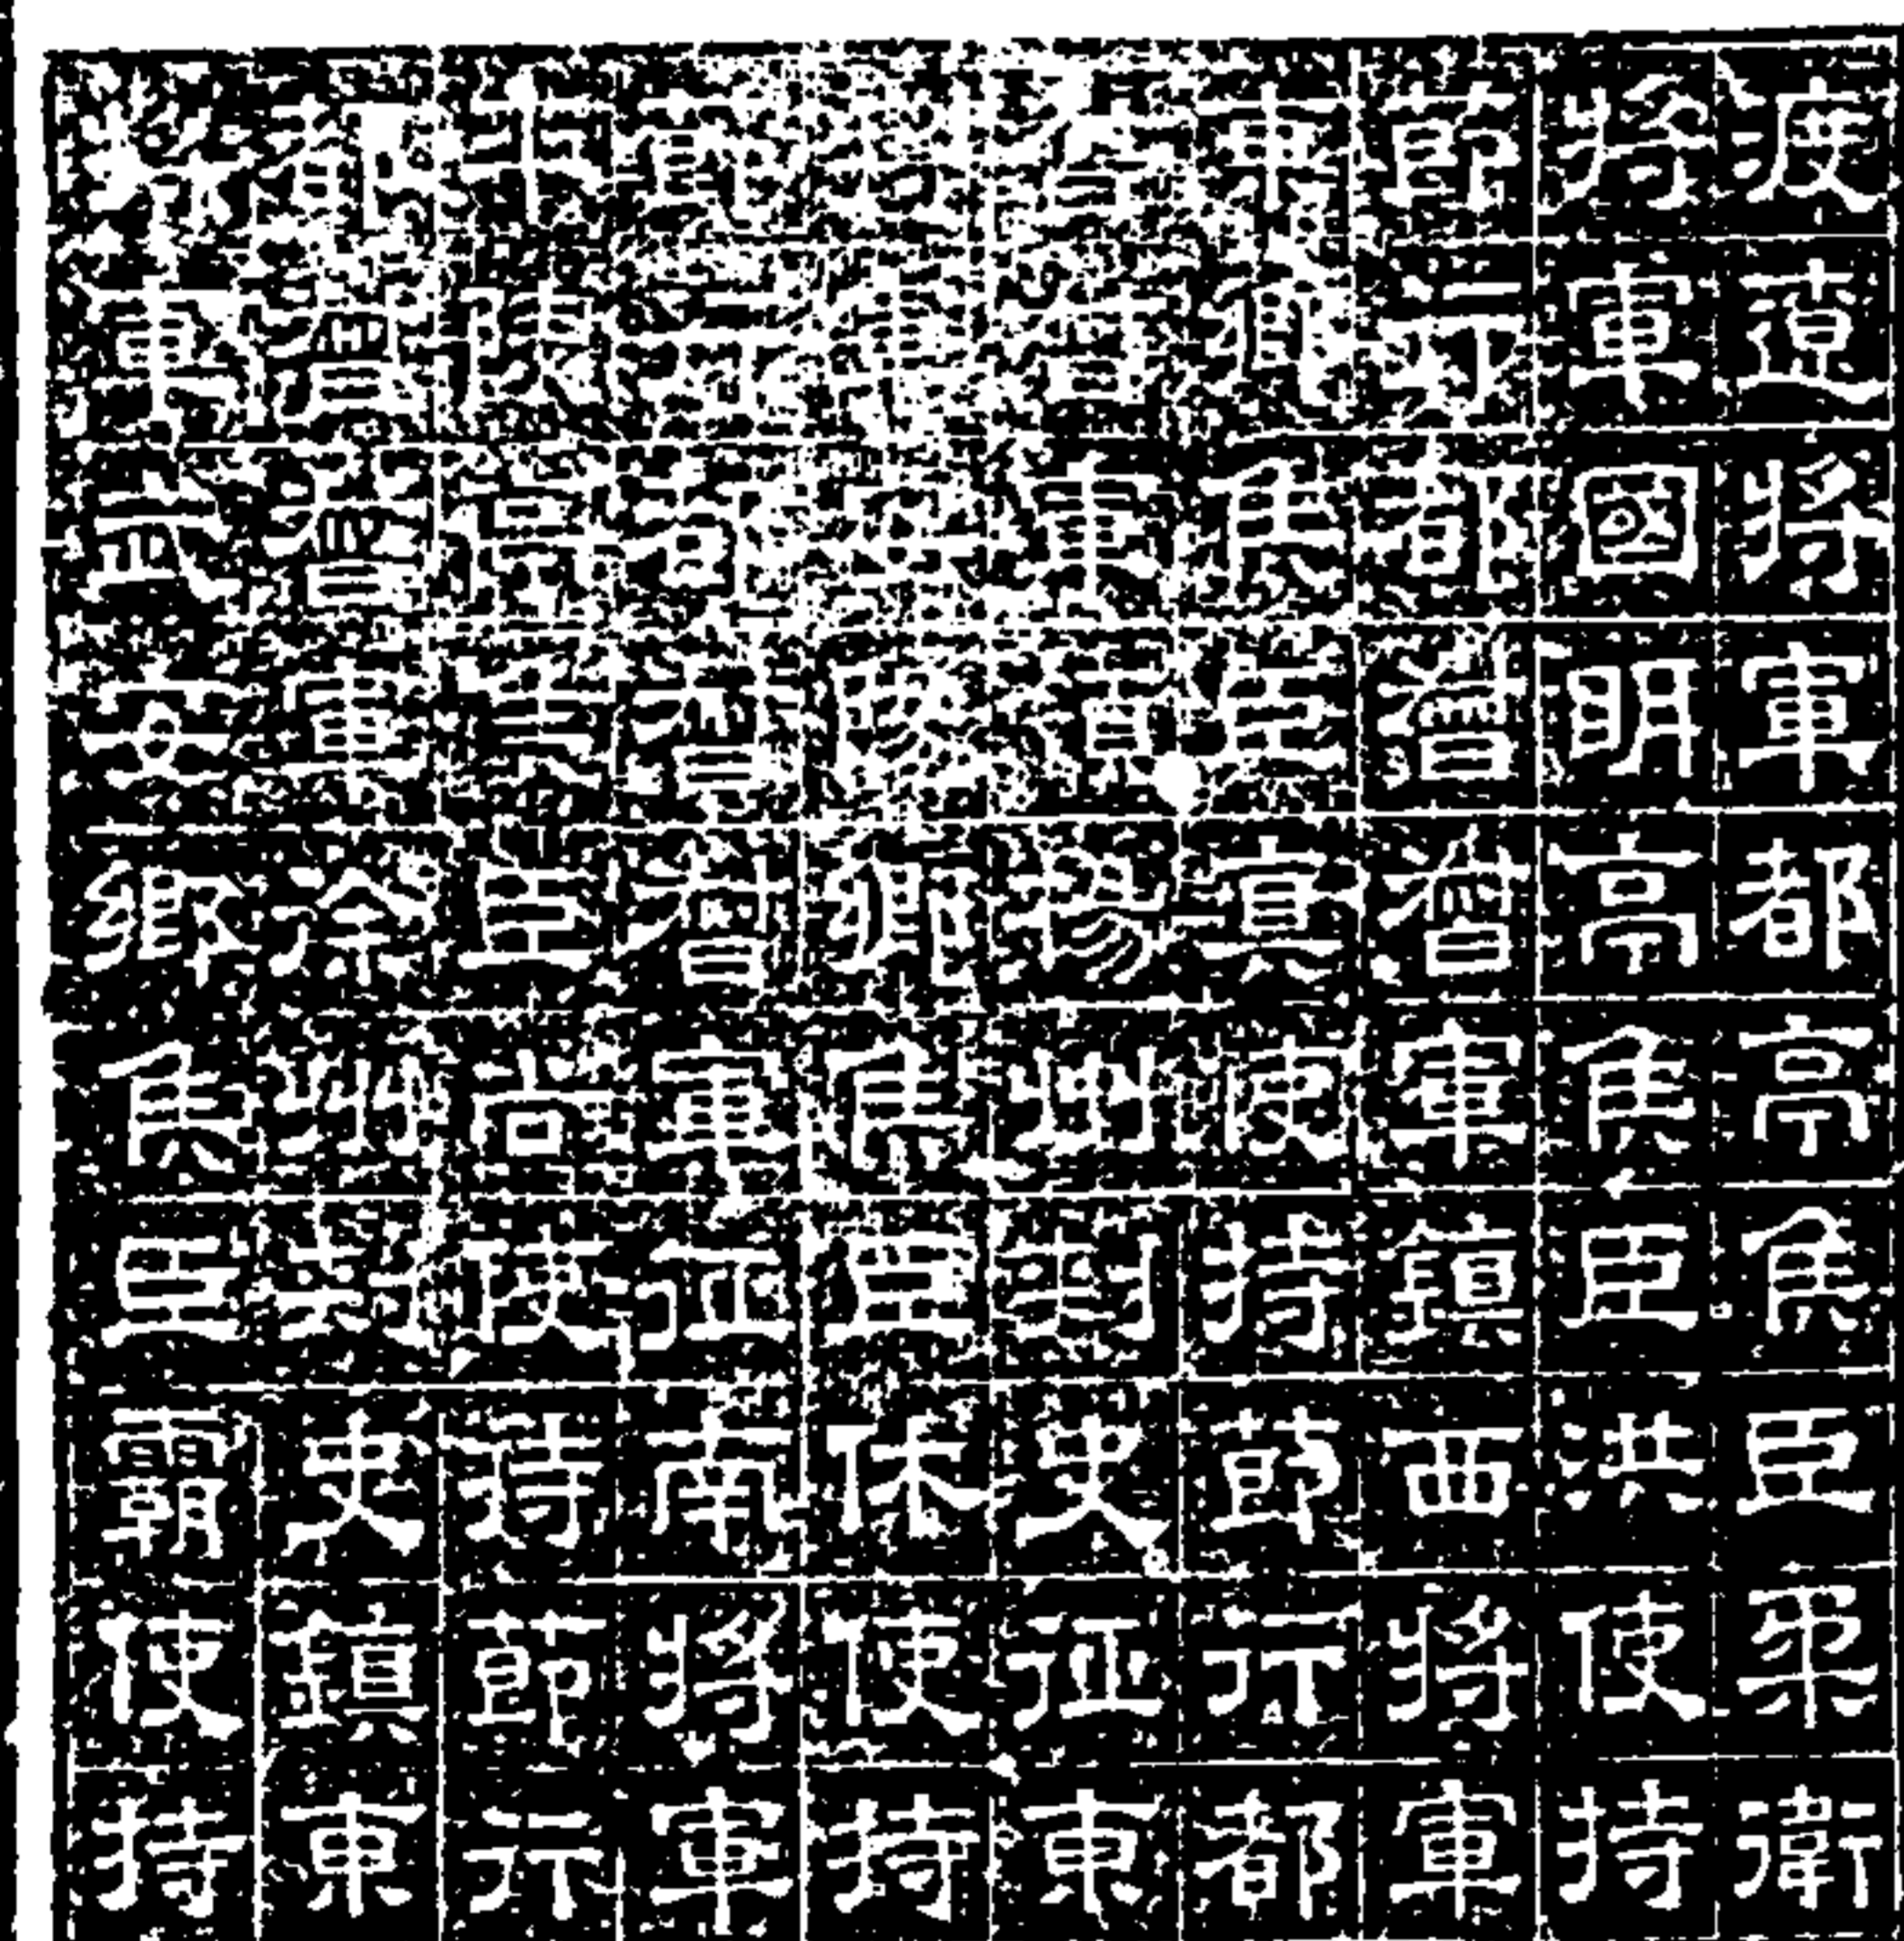 度遼將軍都亭侯臣柔衛
將軍國明亭侯臣洪使持
節行都督督軍鎮西將軍
東鄉侯臣真使持節行都
督督軍領揚州刺史征東
將軍安陽鄉侯臣休使持
節行都督督軍征南將軍
平陵亭侯臣尚使持節行
都督督軍徐州刺史鎮東
將軍武安鄉侯臣霸使持